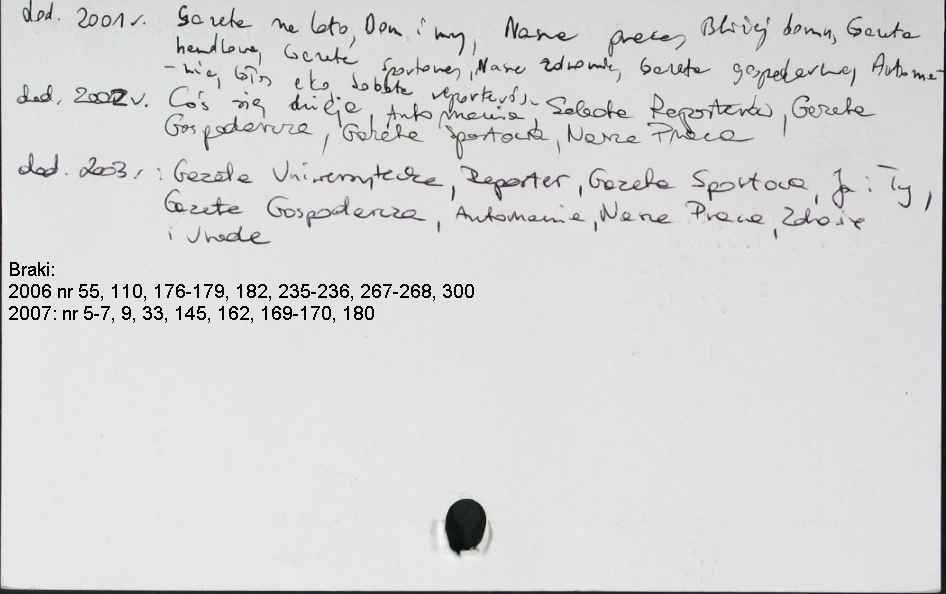 dod. 2001 r. Gazeta na lato, Dom i my, Nasze prace, Bliżej domu, Gazeta
handlowa, Gazeta sportowa, Nasze zdrowie, Gazeta gospodarcza, Automa-
-nia, eko sobota reporterów
dod. 2002 r. Coś się dzieje, Automania, Sobota Reporterów, Gazeta
Gospodarcza, Gazeta Sportowa, Nasza Praca
dod. 2003 r.: Gazeta Uniwersytecka, Reporter, Gazeta Sportowa, Ja i Ty,
Gazeta Gospodarcza, Automania, Nasza Praca, Zdrowie
i Uroda
Braki:
2006 nr 55, 110, 176-179, 182, 235-236, 267-268, 300
2007: nr 5-7, 9, 33, 145, 162, 169-170, 180